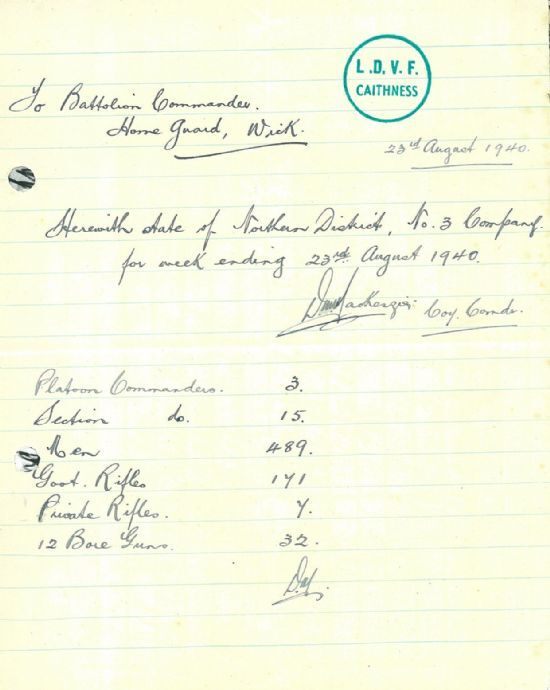 L.D.V.F.
CAITHNESS
To Battalion Commander.
Home Guard, Wick.
23rd August 1940.
Herewith state of Northern District, No. 3 Company.
for week ending 23rd August 1940.
MacKenzie. Coy. Comdr.
Platoon Commanders. 3.
Section do. 15.
Men 489.
Govt. Rifles 171
Private Rifles. 7.
12 Bore Guns. 32.